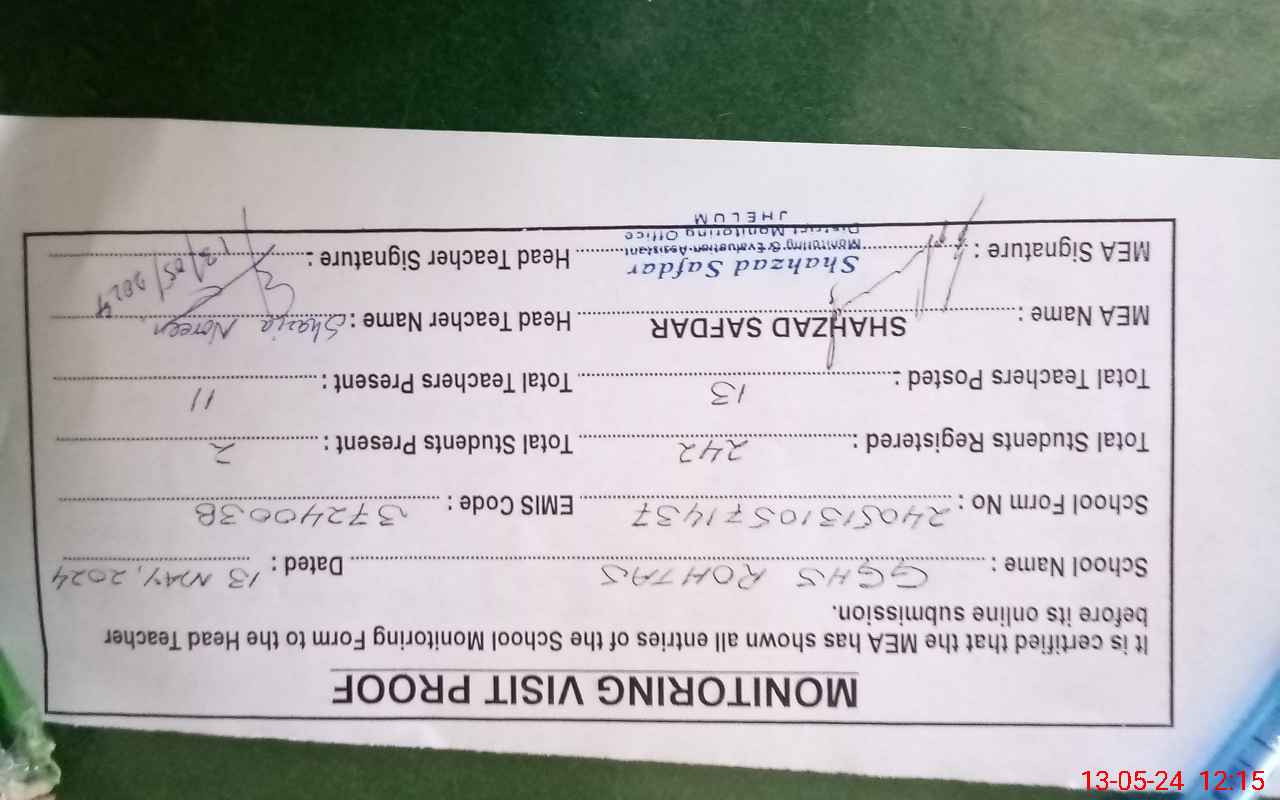 MONITORING VISIT PROOF
It is certified that the MEA has shown all entries of the School Monitoring Form to the Head Teacher
before its online submission.
School Name : GGHS ROHTAS Dated : 13 MAY, 2024
School Form No : 24051310571437 EMIS Code : 37240038
Total Students Registered : 242 Total Students Present : 2
Total Teachers Posted : 13 Total Teachers Present : 11
MEA Name : SHAHZAD SAFDAR Head Teacher Name : Shazia Noreen
MEA Signature : Head Teacher Signature : 13/05/2024
Shahzad Safdar
Monitoring & Evaluation Assistant
District Monitoring Office
JHELUM
13-05-24 12:15